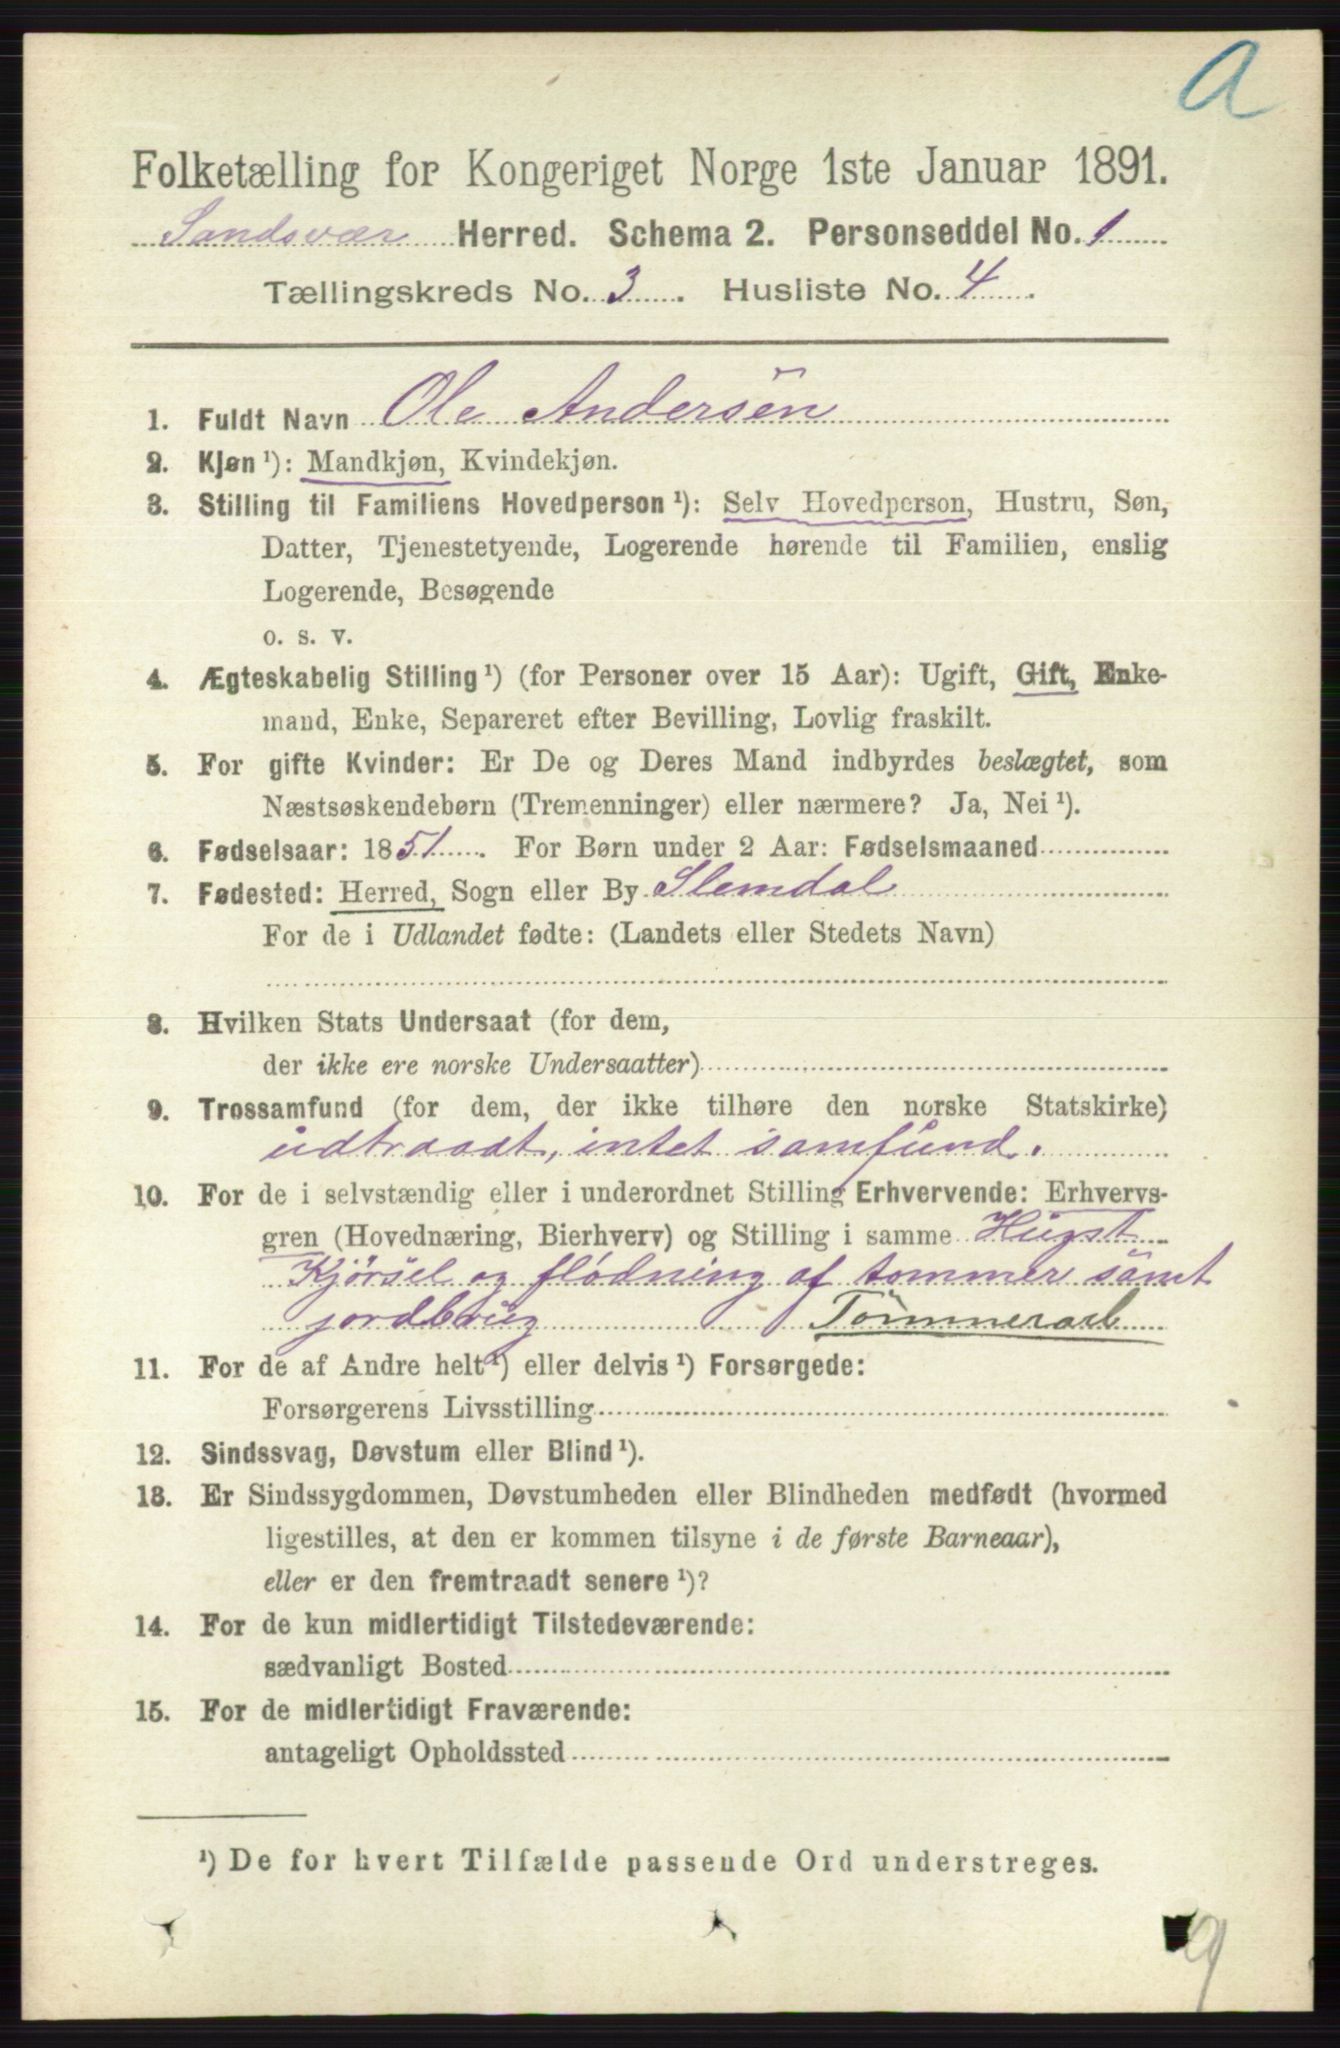 a
Folketælling for Kongeriget Norge 1ste Januar 1891.
Sandsvær Herred. Schema 2. Personseddel No. 1
Tællingskreds No. 3. Husliste No. 4.
1. Fuldt Navn Ole Andersen
2. Kjøn ¹): Mandkjøn, Kvindekjøn.
3. Stilling til Familiens Hovedperson ¹): Selv Hovedperson, Hustru, Søn,
Datter, Tjenestetyende, Logerende hørende til Familien, enslig
Logerende, Besøgende
o. s. v.
4. Ægteskabelig Stilling ¹) (for Personer over 15 Aar): Ugift, Gift, Enke-
mand, Enke, Separeret efter Bevilling, Lovlig fraskilt.
5. For gifte Kvinder: Er De og Deres Mand indbyrdes beslægtet, som
Næstsøskendebørn (Tremenninger) eller nærmere? Ja, Nei ¹).
6. Fødselsaar: 1851. For Børn under 2 Aar: Fødselsmaaned
7. Fødested: Herred, Sogn eller By Slemdal
For de i Udlandet fødte: (Landets eller Stedets Navn)
8. Hvilken Stats Undersaat (for dem,
der ikke ere norske Undersaatter)
9. Trossamfund (for dem, der ikke tilhøre den norske Statskirke)
udtraadt, intet samfund.
10. For de i selvstændig eller i underordnet Stilling Erhvervende: Erhvervs-
gren (Hovednæring, Bierhverv) og Stilling i samme Hugst
Kjørsel og flødning af tømmer samt
jordbrug Tømmerarb
11. For de af Andre helt ¹) eller delvis ¹) Forsørgede:
Forsørgerens Livsstilling
12. Sindssvag, Døvstum eller Blind ¹).
13. Er Sindssygdommen, Døvstumheden eller Blindheden medfødt (hvormed
ligestilles, at den er kommen tilsyne i de første Barneaar),
eller er den fremtraadt senere ¹)?
14. For de kun midlertidigt Tilstedeværende:
sædvanligt Bosted
15. For de midlertidigt Fraværende:
antageligt Opholdssted
¹) De for hvert Tilfælde passende Ord understreges.
9